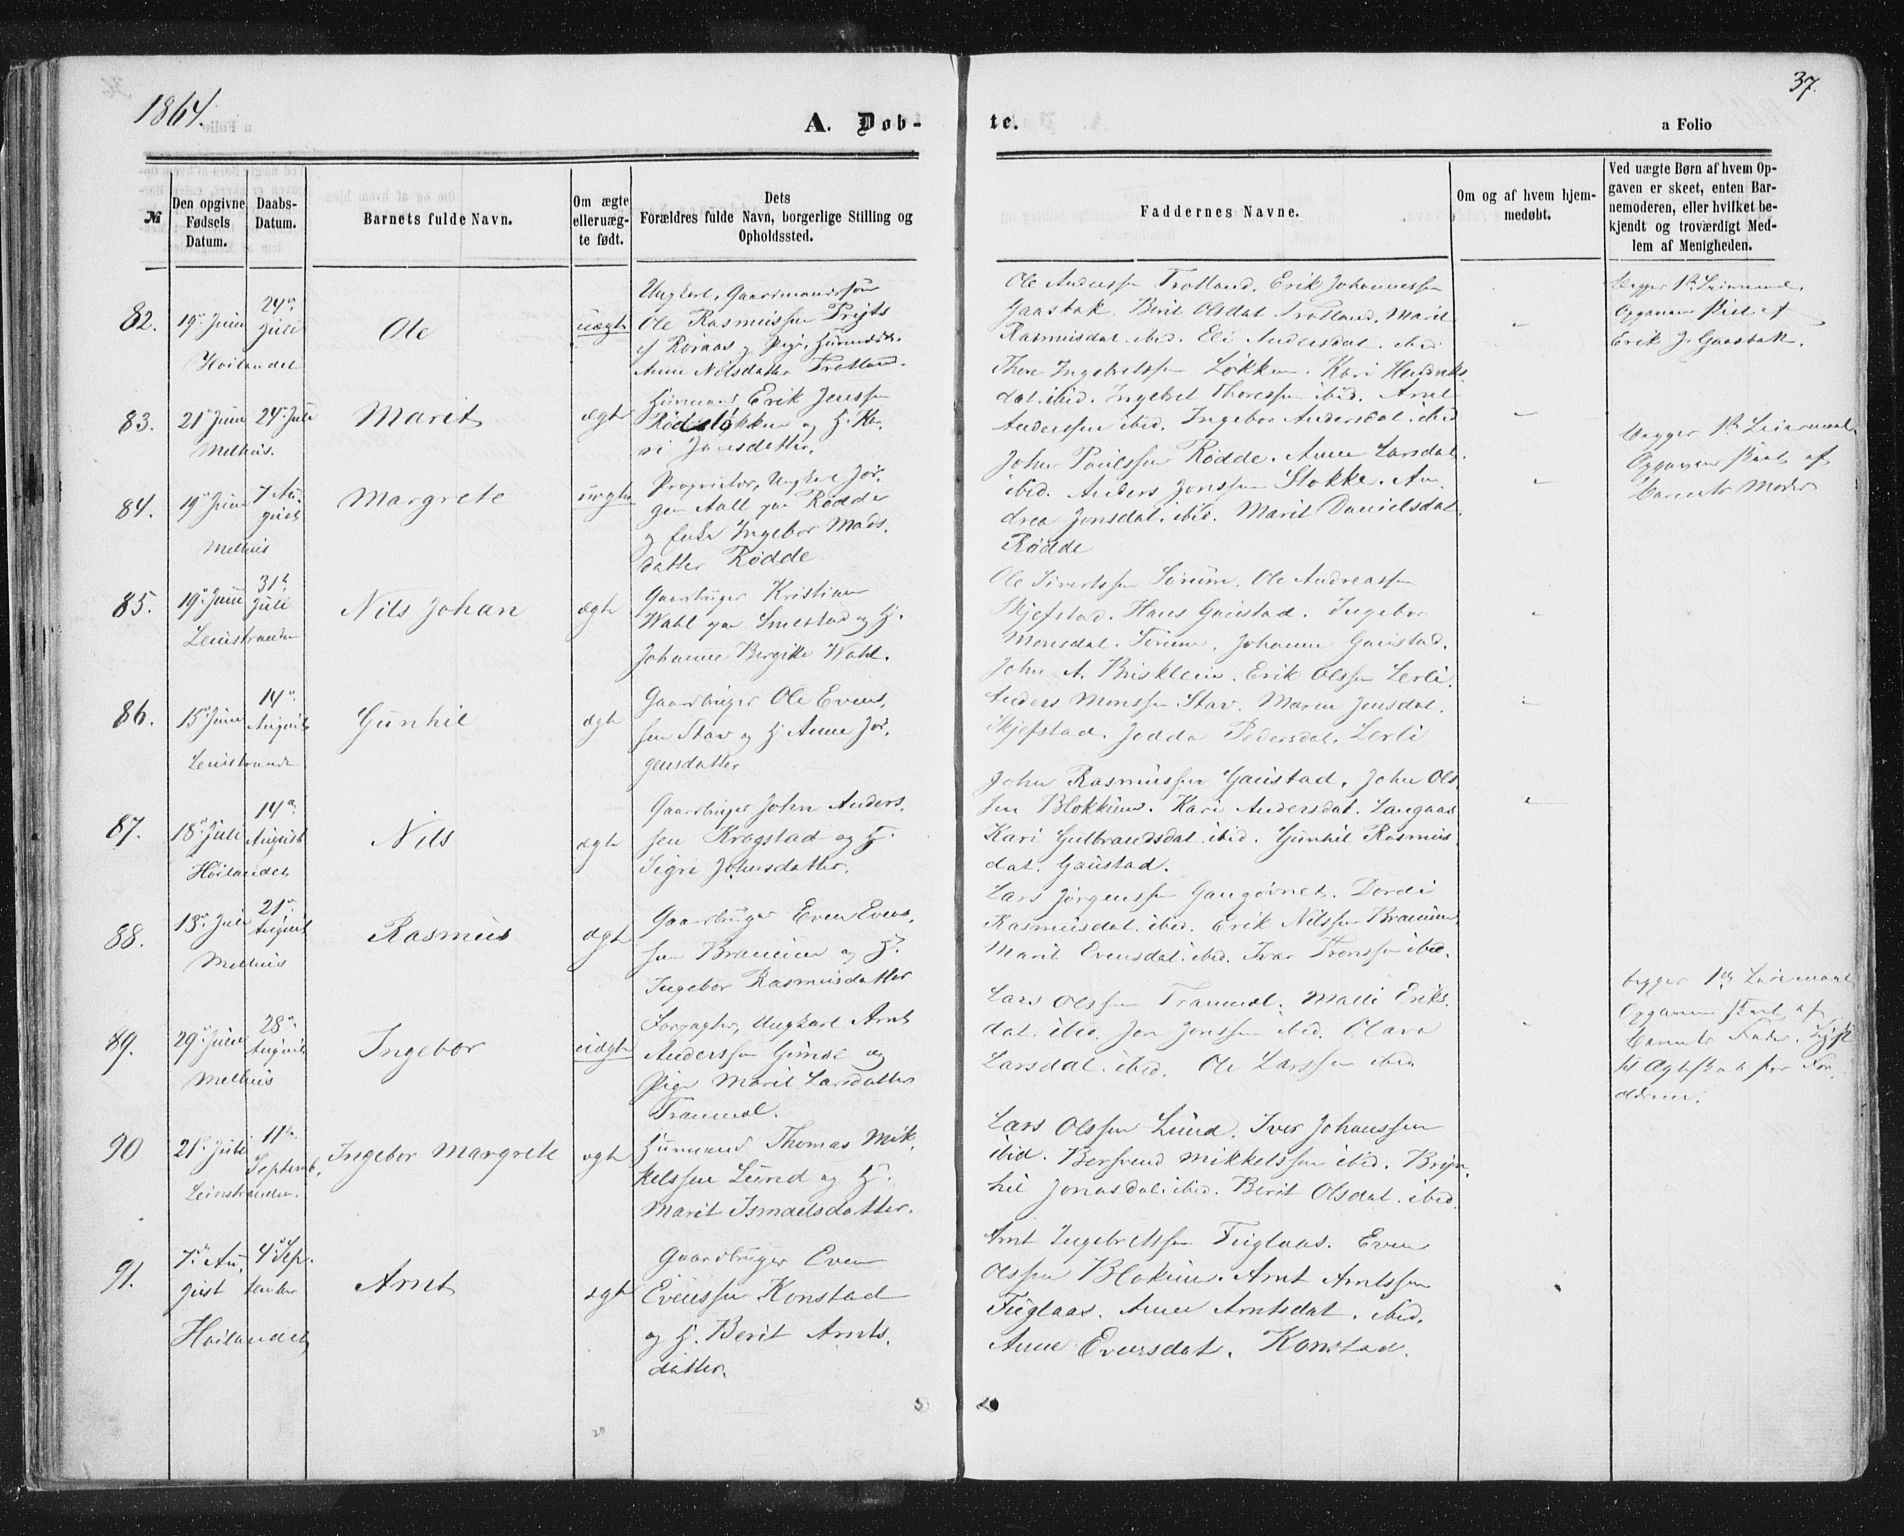 1864.
37.
A. Døb-
te.
a Folio
№
Den opgivne Fødsels Datum.
Daabs-Datum.
Barnets fulde Navn.
Om ægte elleruægte født.
Dets
Forældres fulde Navn, borgerlige Stilling og Opholdssted.
Faddernes Navne.
Om og af hvem hjemmedøbt.
Ved uægte Børn af hvem Opgaven er skeet, enten Barnemoderen, eller hvilket bekjendt og troværdigt Medlem af Menigheden.
82.
19de Juni
Høilandet
24de
Juli
Ole
uægte
Ungkarl, Gaardmandssøn
Ole Rasmussen
af Roraas og Pige,
Anne Nilsdatter Trotland.
Ole Anderssen Trotland. Erik Johannessen
Gaasbak. Berit Olsdat. Trotland. Marit
Rasmusdat. ibid. Eli Andersdat. ibid
Begges 1ste Leiermaal.
Opgaven skeet af
Erik J. Gaasbak.
83.
21de Juni
Melhus.
24de Juli
Marit
ægte
Huusmand Erik Jenssen
Rødsløkken og H. Ka-
ri Jonsdatter.
Thore Ingebretssen Løkken. Kari
dat. ibid. Ingebret Thoressen ibid. Arnt
Anderssen ibid. Ingebor Andersdat. ibid
84.
19de Juni
Melhus
7 Au-
gust
Margrete
uægte
Proprietær, Ungkarl Jør-
gen Aall paa Rødde
og Enke Ingebor Mads-
datter Rødde
John Paulssen Rødde. Anne Larsdat.
ibid. Anders Jonssen Slokke. An-
drea Jonsdat. ibid. Marit Danielsdat.
Rødde
Begges 1ste Leiermaal.
Opgaven skeet af
Barnets Moder
85.
19de Juni
Leinstranden
31te
Juli
Nils Johan
ægte
Gaardbruger Kristian
Wahl paa Smestad og H.
Johanne Birgitte Wahl.
Ole Sivertssen Sørum. Ole Andreassen
Skjefstad. Hans Gaustad. Ingebor
Monsdat. Sørum. Johanne Gaustad.
86.
15de Juni
Leinstranden
14de
August
Gunhil
ægte
Gaardbruger Ole Evens-
sen Stav og H. Anne Jør-
gensdatter
John A. Brisklein. Erik Olssen Lerli.
Anders Monssen Stav. Maren Jensdat.
Skjefstad. Jedda Pedersdat. Lerli
87.
18de Juli
Høilandet
14de
August
Nils
ægte
Gaardbruger John Anders-
sen Krogstad og H.
Sigri Johnsdatter.
John Rasmussen Gaustad. John Ols-
sen Blokkum. Kari Andersdat. Langaas
Kari Gulbrandsdat. ibid. Gunhil Rasmus-
dat. Gaustad.
88.
18de Juli
Melhus
21de
August
Rasmus
ægte
Gaardbruger Even Evens-
sen Braamm og H.
Ingebor Rasmusdatter
Lars Jørgenssen Gangørnet. Dordi
Rasmusdat. ibid. Erik Nilssen
Marit Evensdat. ibid. Ivar Tronssen ibid.
89.
29de Juli
Melhus
28de
August
Ingebor
uægte
Forpagter, Ungkarl Arnt
Anderssen Gimse og
Pige Marit Larsdatter
Tranmæl.
Lars Olssen Tranmæl. Malli Eriks-
dat. ibid. Jon Jonssen ibid. Olava
Larsdat. ibid. Ole Larssen ibid
begges 1ste Leiermaal
Opgaven skeet af
Barnets Fader.
til Ægteskab for For-
ældrene.
90
21de Juli
Leinstranden.
11te
Septemb.
Ingebor Margrete
ægte
Huusmand Thomas Mik-
kelssen Lund og H.
Marit Ismaelsdatter.
Lars Olssen Lund. Iver Johanssen
ibid. Bersvend Mikkelssen ibid. Bryn-
hil Jonasdat. ibid. Berit Olsdat. ibid.
91.
7de Au-
gust
Høilandet
4de Sep-
tember
Arnt
ægte
Gaardbruger Even
Evenssen Konstad
og H. Berit Arnts-
datter.
Arnt Ingebretssen Fuglaas. Even
Olssen Blokum. Arnt Arntssen
Fuglaas. Anne Arntsdat. ibid.
Anne Evensdat. Konstad.
20